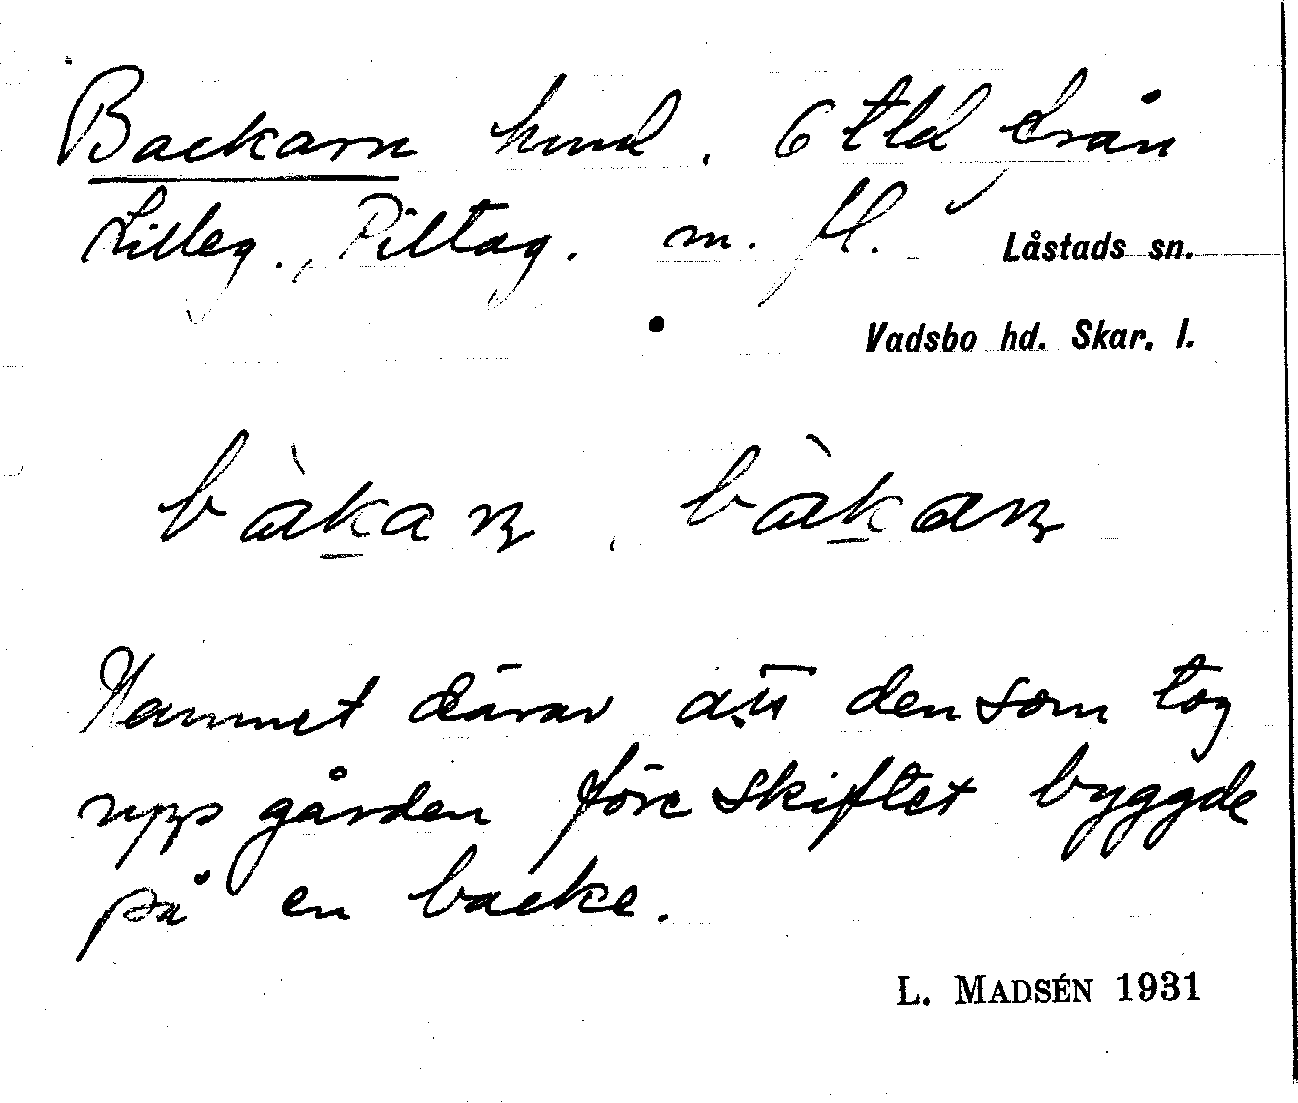 Backarn hmd. 6 tld från
Lilleg., Piltag. m. fl. Låstads sn.
Vadsbo hd. Skar. l.
bàkaɳ, bàkaɳ
Namnet därav att den som tog
upp gården före skiftet byggde
på en backe.
L. MADSÉN 1931